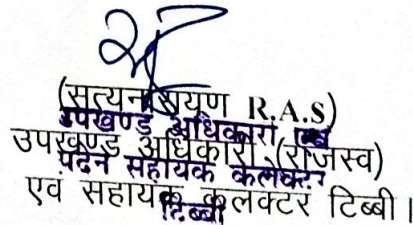 (सत्यनारायण R.A.S)
उपखण्ड अधिकारी एवं
उपखण्ड अधिकारी (राजस्व)
पदेन सहायक कलेक्टर
एवं सहायक कलक्टर टिब्बी।
टिब्बी